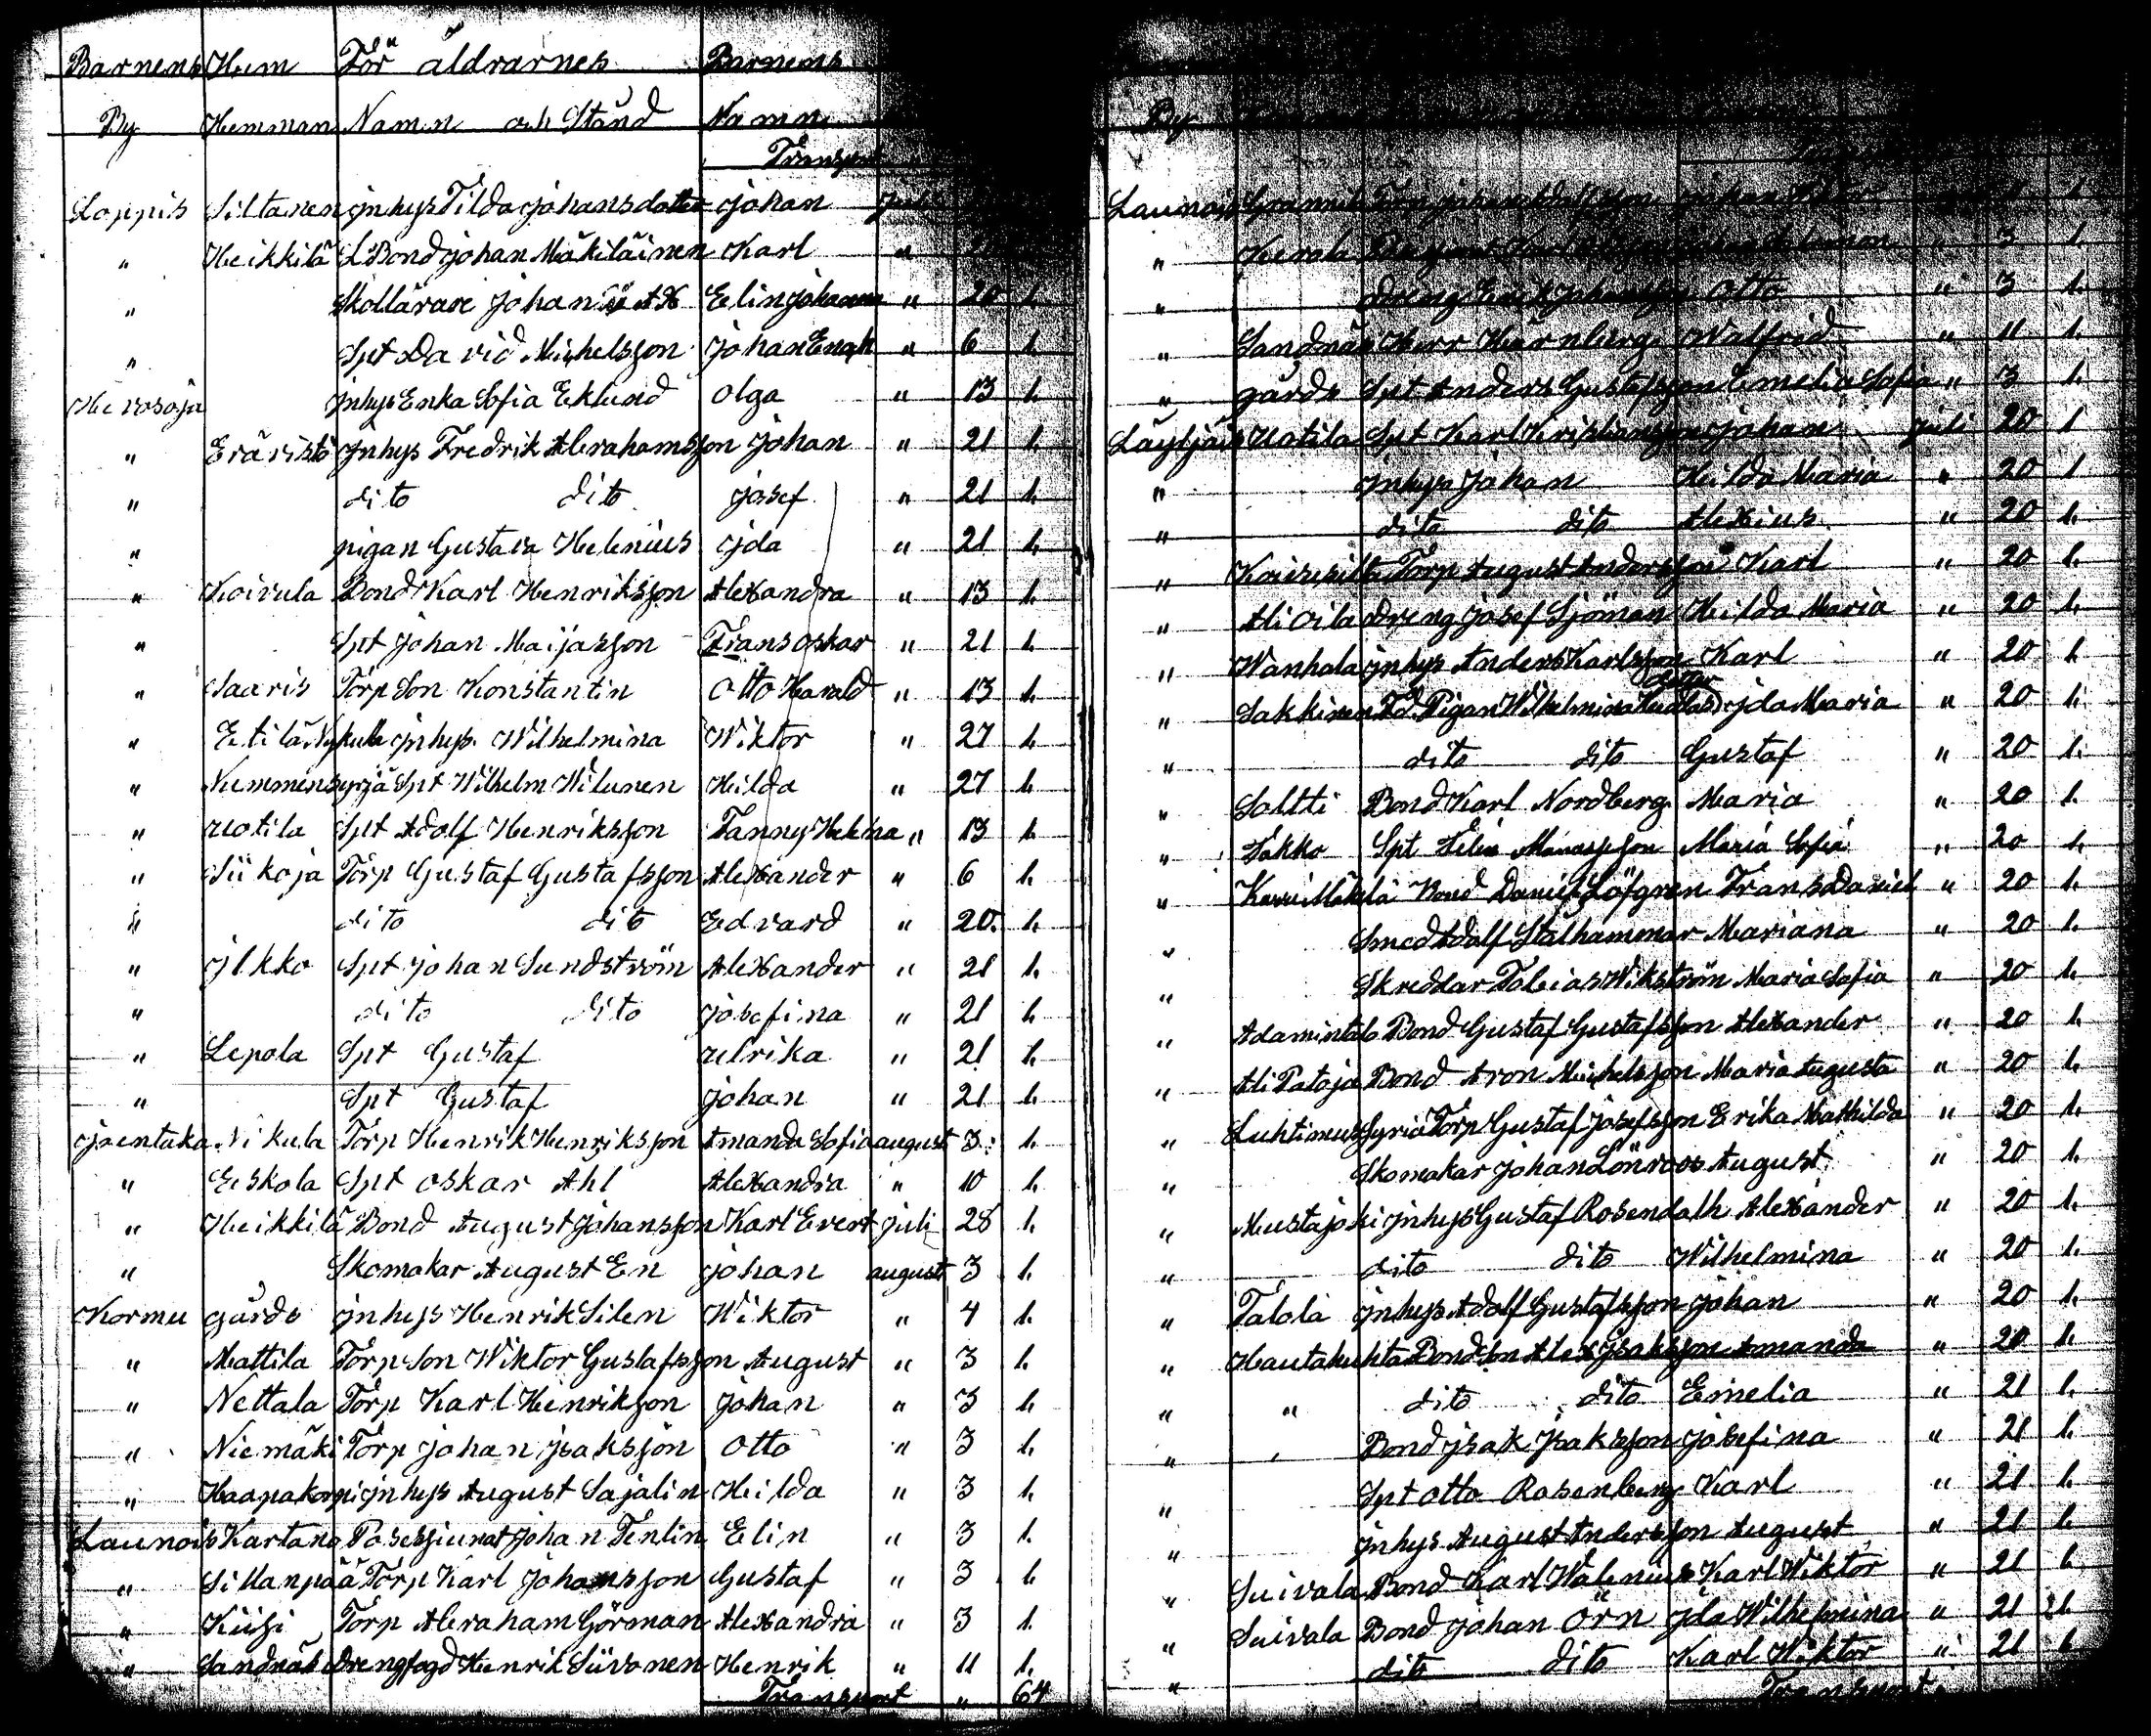 Barnens Hem För äldrarnes Barnens
By Hemman Namn och Stånd Namn
Transport
Loppis Siltanen jnhys Tilda johansdotter johan juli
" Heikkilä L Bond johan Mäkiläinen Karl "
" Skollärare johan Elin johanna " 20 1.
" Spt David Michelsson johan Enok " 6 1.
Hevosoja jnhys Enka Sofia Eklund Olga " 13 1.
" Eräristo jnhys Fredrik Abrahamsson johan " 21 1.
" dito dito josef " 21 1.
" pigan Gustava Helenius jda " 21 1.
" Koivula Bond Karl Henriksson Alexandra " 13 1.
" Spt johan Maijasson Frans oskar " 21 1.
" Saaris Torp Son Konstantin Otto Harald " 13 1.
" Etilä Nykula jnhys Wilhelmina Wiktor " 27 1.
" Nummensyrjä Spt Wilhelm Wilunen Hilda " 27 1.
" uotila Spt Adolf Henriksson Fanny Helena " 13 1.
" Siikoja Torp Gustaf Gustafsson Alexander " 6 1.
" dito dito Edvard " 20. 1.
" jlkko Spt johan Sundström Alexander " 21 1.
" dito dito josefina " 21 1.
" Lepola Spt Gustaf ulrika " 21 1.
" Spt Gustaf johan " 21 1.
jäentaka Nikula Torp Henrik Henriksson Amanda Sofia august 3. 1.
" Eskola Spt oskar Ahl Alexandra " 10 1.
" Heikkilä Bond August johansson Karl Evert juli 28 1.
" Skomakar August En johan august 3 1.
Kormu gårds jnhys Henrik Silen Wiktor " 4 1.
" Mattila Torp Son Wiktor Gustafsson August " 3 1.
" Nettala Torp Karl Henrikson johan " 3 1.
" Niemäki Torp johan jsaksson Otto " 3 1.
" Haapakorpi jnhys August Sajalin Hilda " 3 1.
Launois Kartano Possessiunat johan Tenlin Elin " 3 1.
" Sillanpää Torp Karl johansson Gustaf " 3 1.
" Kiisi Torp Abraham Görman Alexandra " 3 1.
" Sandnäs Drengfogd Henrik Siivonen Henrik " 11 1.
Transport " 64
By
Launois Torp johan 1.
" Kerola " 3 1.
" Dreng Erik johansson Otto " 3 1.
" Sandnäs Herr Härnberg Walfrid " 11 1.
" gårds Spt Anders Gustafsson Emelia Sofia " 3 1.
Läyljäis Uotila Spt Karl Kristiansson johan juli 20 1
" jnhys johan Hilda Maria " 20 1.
" dito dito Alexius " 20 1.
" Koivusilta Torp August Andersson Karl " 20 1.
" Ali Oila Dreng josef Sjöman Hilda Maria " 20 1.
" Wanhala jnhys Anders Karlsson Karl " 20 1.
" Sakkinen Fd Pigan Wilhelmina dotter jda Maria " 20 1.
" dito dito Gustaf " 20 1.
" Soltti Bond Karl Nordberg Maria " 20 1.
" Jakko Spt Manasseson Maria Sofia " 20 1.
" Mäkelä Bond Daniel Löfgren Frans Daniel " 20 1.
" Smed Adolf Stålhammar Mariana " 20 1.
" Skreddar Tobias Wikström Maria Sofia " 20 1.
" Adamintalo Bond Gustaf Gustafsson Alexander " 20 1.
" Ali Pataja Bond Aron Michelsson Maria Augusta " 20 1.
" Torp Gustaf josefsson Erika Mathilda " 20 1.
" Skomakar johan Lönroos August " 20 1.
" Mustajoki jnhys Gustaf Rosendalh Alexander " 20 1.
" dito dito Wilhelmina " 20 1.
" Talola jnhys Adolf Gustafsson johan " 20 1.
" Hautakuhta Bondson Alex jsaksson Amanda " 20 1.
" " dito dito Emelia " 21 1.
" Bond jsak jsaksson josefina " 21 1.
" Spt otto Rosenberg Karl " 21 1.
" jnhys August Andersson August " 21 1.
" Suivala Bond Karl Walenius Karl Wiktor " 21 1
" Suivala Bond johan Örn jda Wilhelmina " 21 1.
" dito dito Karl Wiktor " 21 1
Transport